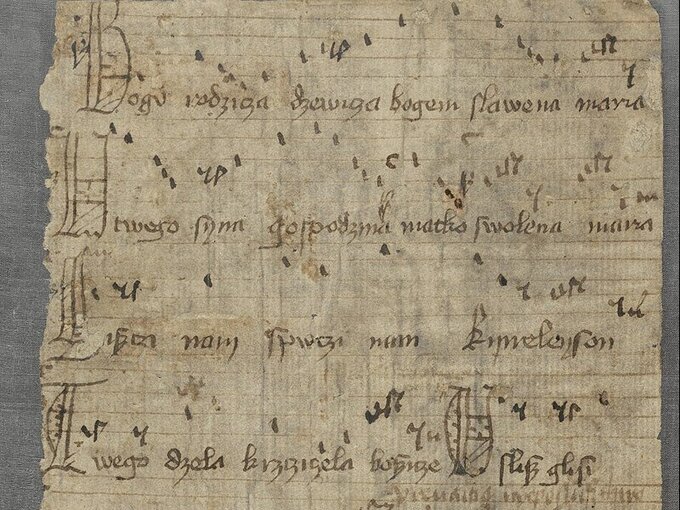 Bogu rodzicza dzewicza bogem slawena maria
U twego syna gospodzina matko swolena maria
Siszczi nam spwczi nam Kyrieleyson
Twego dzela krzcziczela boszicze U slisz glosi